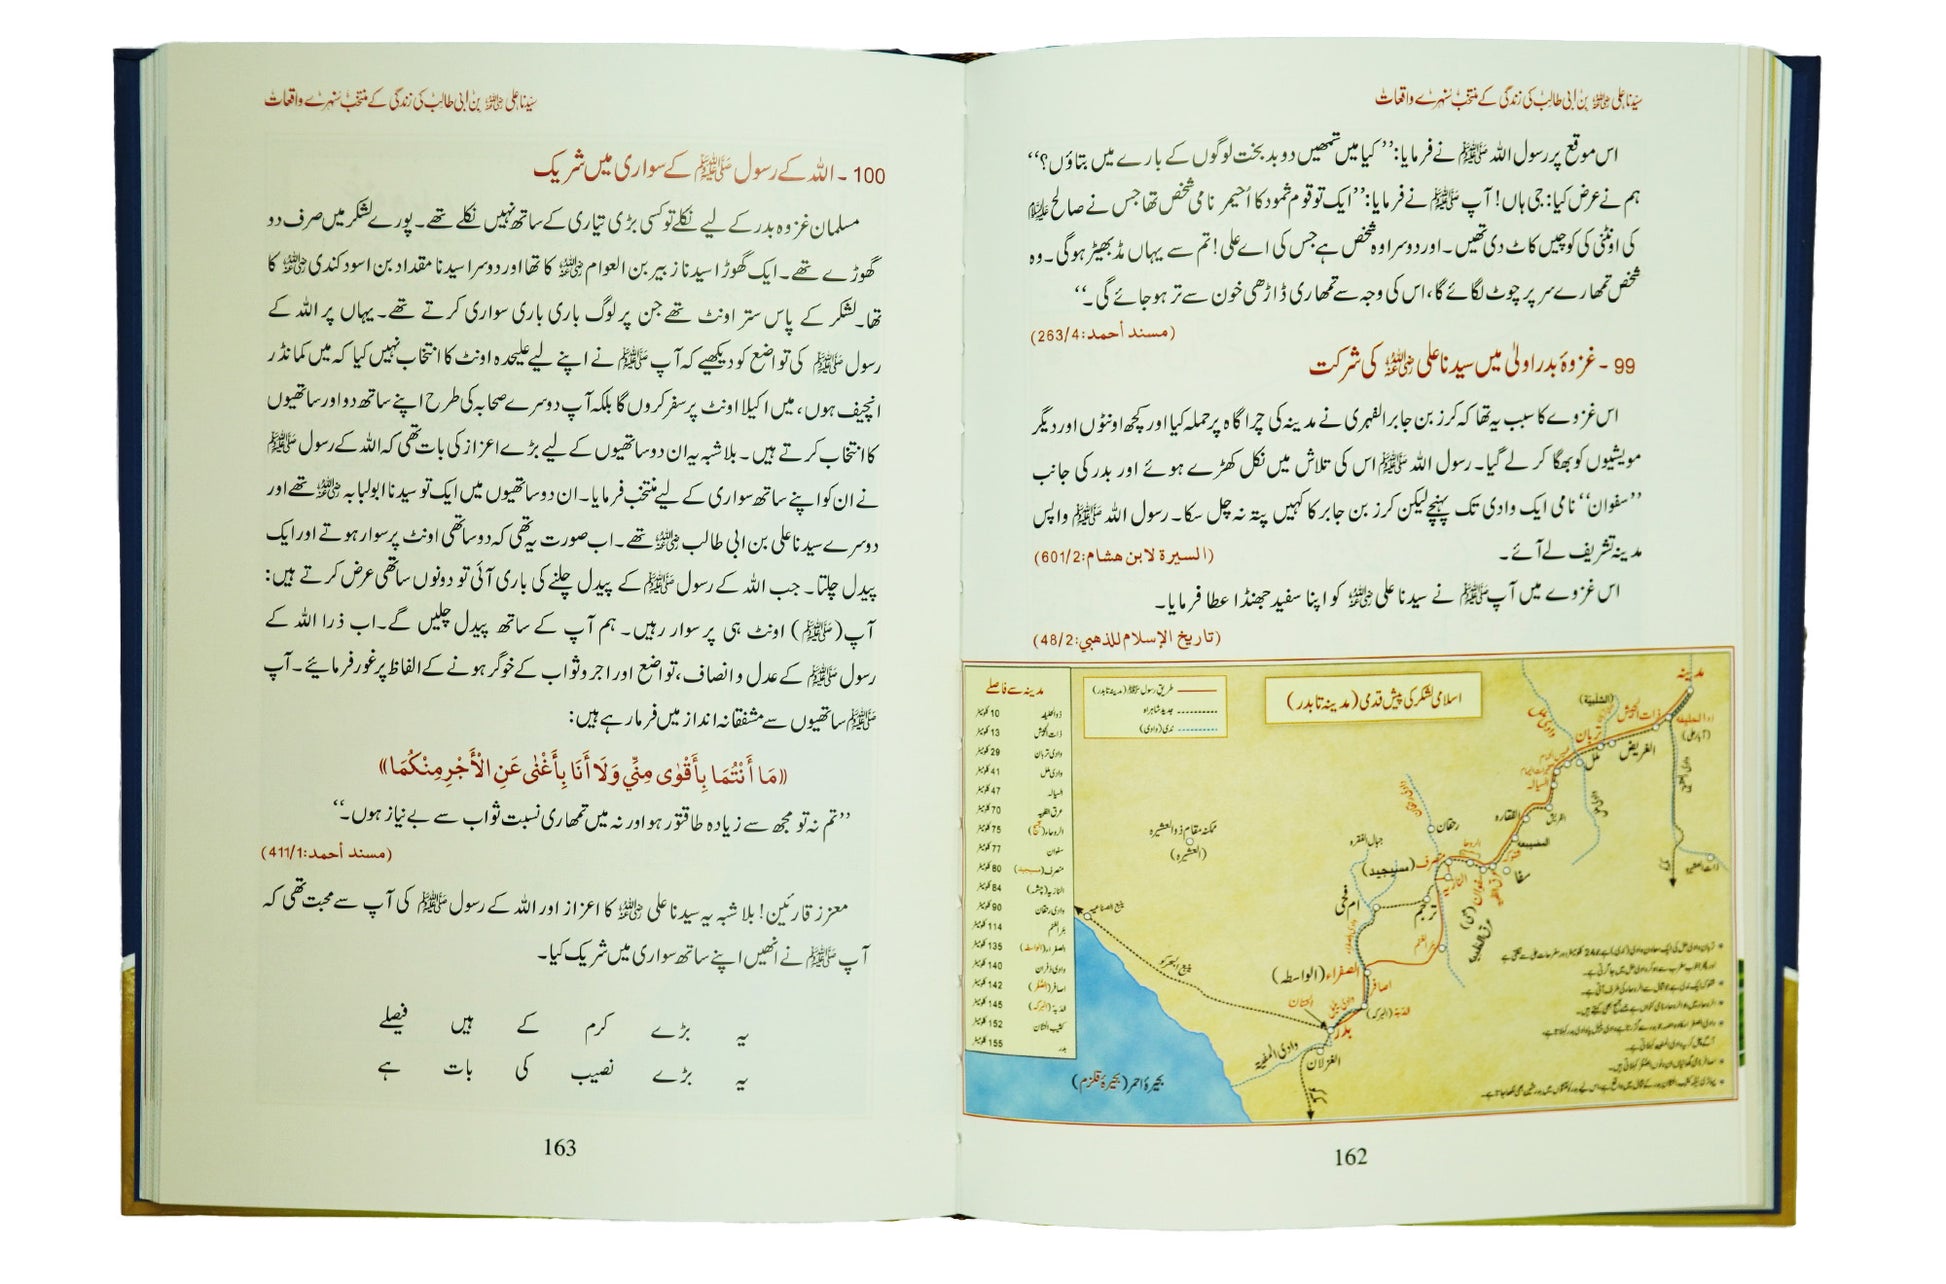 سیدنا علی رضی اللہ عنہ بن ابی طالب کی زندگی کے منتخب سنہرے واقعات
اس موقع پر رسول اللہ ﷺ نے فرمایا: ’’کیا میں تمھیں دو بدبخت لوگوں کے بارے میں بتاؤں؟‘‘
ہم نے عرض کیا: جی ہاں! آپ ﷺ نے فرمایا: ’’ایک تو قوم ثمود کا اُحیمر نامی شخص تھا جس نے صالح علیہ السلام
کی اونٹنی کی کوچیں کاٹ دی تھیں۔ اور دوسرا وہ شخص ہے جس کی اے علی! تم سے یہاں مڈبھیڑ ہوگی۔ وہ
شخص تمھارے سر پر چوٹ لگائے گا، اس کی وجہ سے تمھاری ڈاڑھی خون سے تر ہو جائے گی۔‘‘
(مسند أحمد: 263/4)
99 - غزوۂ بدر اولیٰ میں سیدنا علی رضی اللہ عنہ کی شرکت
اس غزوے کا سبب یہ تھا کہ کرز بن جابر الفہری نے مدینہ کی چراگاہ پر حملہ کیا اور کچھ اونٹوں اور دیگر
مویشیوں کو بھگا کر لے گیا۔ رسول اللہ ﷺ اس کی تلاش میں نکل کھڑے ہوئے اور بدر کی جانب
’’سفوان‘‘ نامی ایک وادی تک پہنچے لیکن کرز بن جابر کا کہیں پتہ نہ چل سکا۔ رسول اللہ ﷺ واپس
مدینہ تشریف لے آئے۔ (السيرة لابن هشام: 601/2)
اس غزوے میں آپ ﷺ نے سیدنا علی رضی اللہ عنہ کو اپنا سفید جھنڈا عطا فرمایا۔
(تاريخ الإسلام للذهبي: 48/2)
اسلامی لشکر کی پیش قدمی (مدینہ تا بدر)
طریق رسول ﷺ (مدینہ تا بدر)
جدید شاہراہ
ندی (وادی)
مدینہ سے فاصلے
ذوالحلیفہ 10 کلومیٹر
ذات الجیش 13 کلومیٹر
وادی تربان 29 کلومیٹر
وادی ملل 41 کلومیٹر
السیالہ 47 کلومیٹر
عرق الظبیہ 70 کلومیٹر
الروحاء 75 کلومیٹر
سفوان 77 کلومیٹر
منصرف (مسیجید) 80 کلومیٹر
النازیہ 84 کلومیٹر
وادی رحقان 90 کلومیٹر
114 کلومیٹر
الصفراء (الواسطہ) 135 کلومیٹر
وادی ذفران 140 کلومیٹر
اصافر 142 کلومیٹر
الدبہ (البرکہ) 145 کلومیٹر
152 کلومیٹر
بدر 155 کلومیٹر
مدینہ
ذات الجیش
تربان
العریض
ملل
السیالہ
رحقان
جبال الفقرہ
منصرف (مسیجید)
النازیہ
ام فحی
الصفراء (الواسطہ)
اصافر
الدبہ (البرکہ)
بدر
الغزلان
ممکنہ مقام ذوالعشیرہ
(العشیرہ)
ینبع البحر کو
بحیرۂ احمر (بحیرۂ قلزم)
162
سیدنا علی رضی اللہ عنہ بن ابی طالب کی زندگی کے منتخب سنہرے واقعات
100 - اللہ کے رسول ﷺ کے سواری میں شریک
مسلمان غزوہ بدر کے لیے نکلے تو کسی بڑی تیاری کے ساتھ نہیں نکلے تھے۔ پورے لشکر میں صرف دو
گھوڑے تھے۔ ایک گھوڑا سیدنا زبیر بن العوام رضی اللہ عنہ کا تھا اور دوسرا سیدنا مقداد بن اسود کندی رضی اللہ عنہ کا
تھا۔ لشکر کے پاس ستر اونٹ تھے جن پر لوگ باری باری سواری کرتے تھے۔ یہاں پر اللہ کے
رسول ﷺ کی تواضع کو دیکھیے کہ آپ ﷺ نے اپنے لیے علیحدہ اونٹ کا انتخاب نہیں کیا کہ میں کمانڈر
انچیف ہوں، میں اکیلا اونٹ پر سفر کروں گا بلکہ آپ دوسرے صحابہ کی طرح اپنے ساتھ دو اور ساتھیوں
کا انتخاب کرتے ہیں۔ بلاشبہ یہ ان دو ساتھیوں کے لیے بڑے اعزاز کی بات تھی کہ اللہ کے رسول ﷺ
نے ان کو اپنے ساتھ سواری کے لیے منتخب فرمایا۔ ان دو ساتھیوں میں ایک تو سیدنا ابولبابہ رضی اللہ عنہ تھے اور
دوسرے سیدنا علی بن ابی طالب رضی اللہ عنہ تھے۔ اب صورت یہ تھی کہ دو ساتھی اونٹ پر سوار ہوتے اور ایک
پیدل چلتا۔ جب اللہ کے رسول ﷺ کے پیدل چلنے کی باری آئی تو دونوں ساتھی عرض کرتے ہیں:
آپ (ﷺ) اونٹ ہی پر سوار رہیں۔ ہم آپ کے ساتھ پیدل چلیں گے۔ اب ذرا اللہ کے
رسول ﷺ کے عدل و انصاف، تواضع اور اجر و ثواب کے خوگر ہونے کے الفاظ پر غور فرمائیے۔ آپ
ﷺ ساتھیوں سے مشفقانہ انداز میں فرما رہے ہیں:
«مَا أَنْتُمَا بِأَقْوٰى مِنِّي وَلَا أَنَا بِأَغْنٰى عَنِ الْأَجْرِ مِنْكُمَا»
’’تم نہ تو مجھ سے زیادہ طاقتور ہو اور نہ میں تمھاری نسبت ثواب سے بے نیاز ہوں۔‘‘
(مسند أحمد: 411/1)
معزز قارئین! بلاشبہ یہ سیدنا علی رضی اللہ عنہ کا اعزاز اور اللہ کے رسول ﷺ کی آپ سے محبت تھی کہ
آپ ﷺ نے انھیں اپنے ساتھ سواری میں شریک کیا۔
یہ بڑے کرم کے ہیں فیصلے
یہ بڑے نصیب کی بات ہے
163